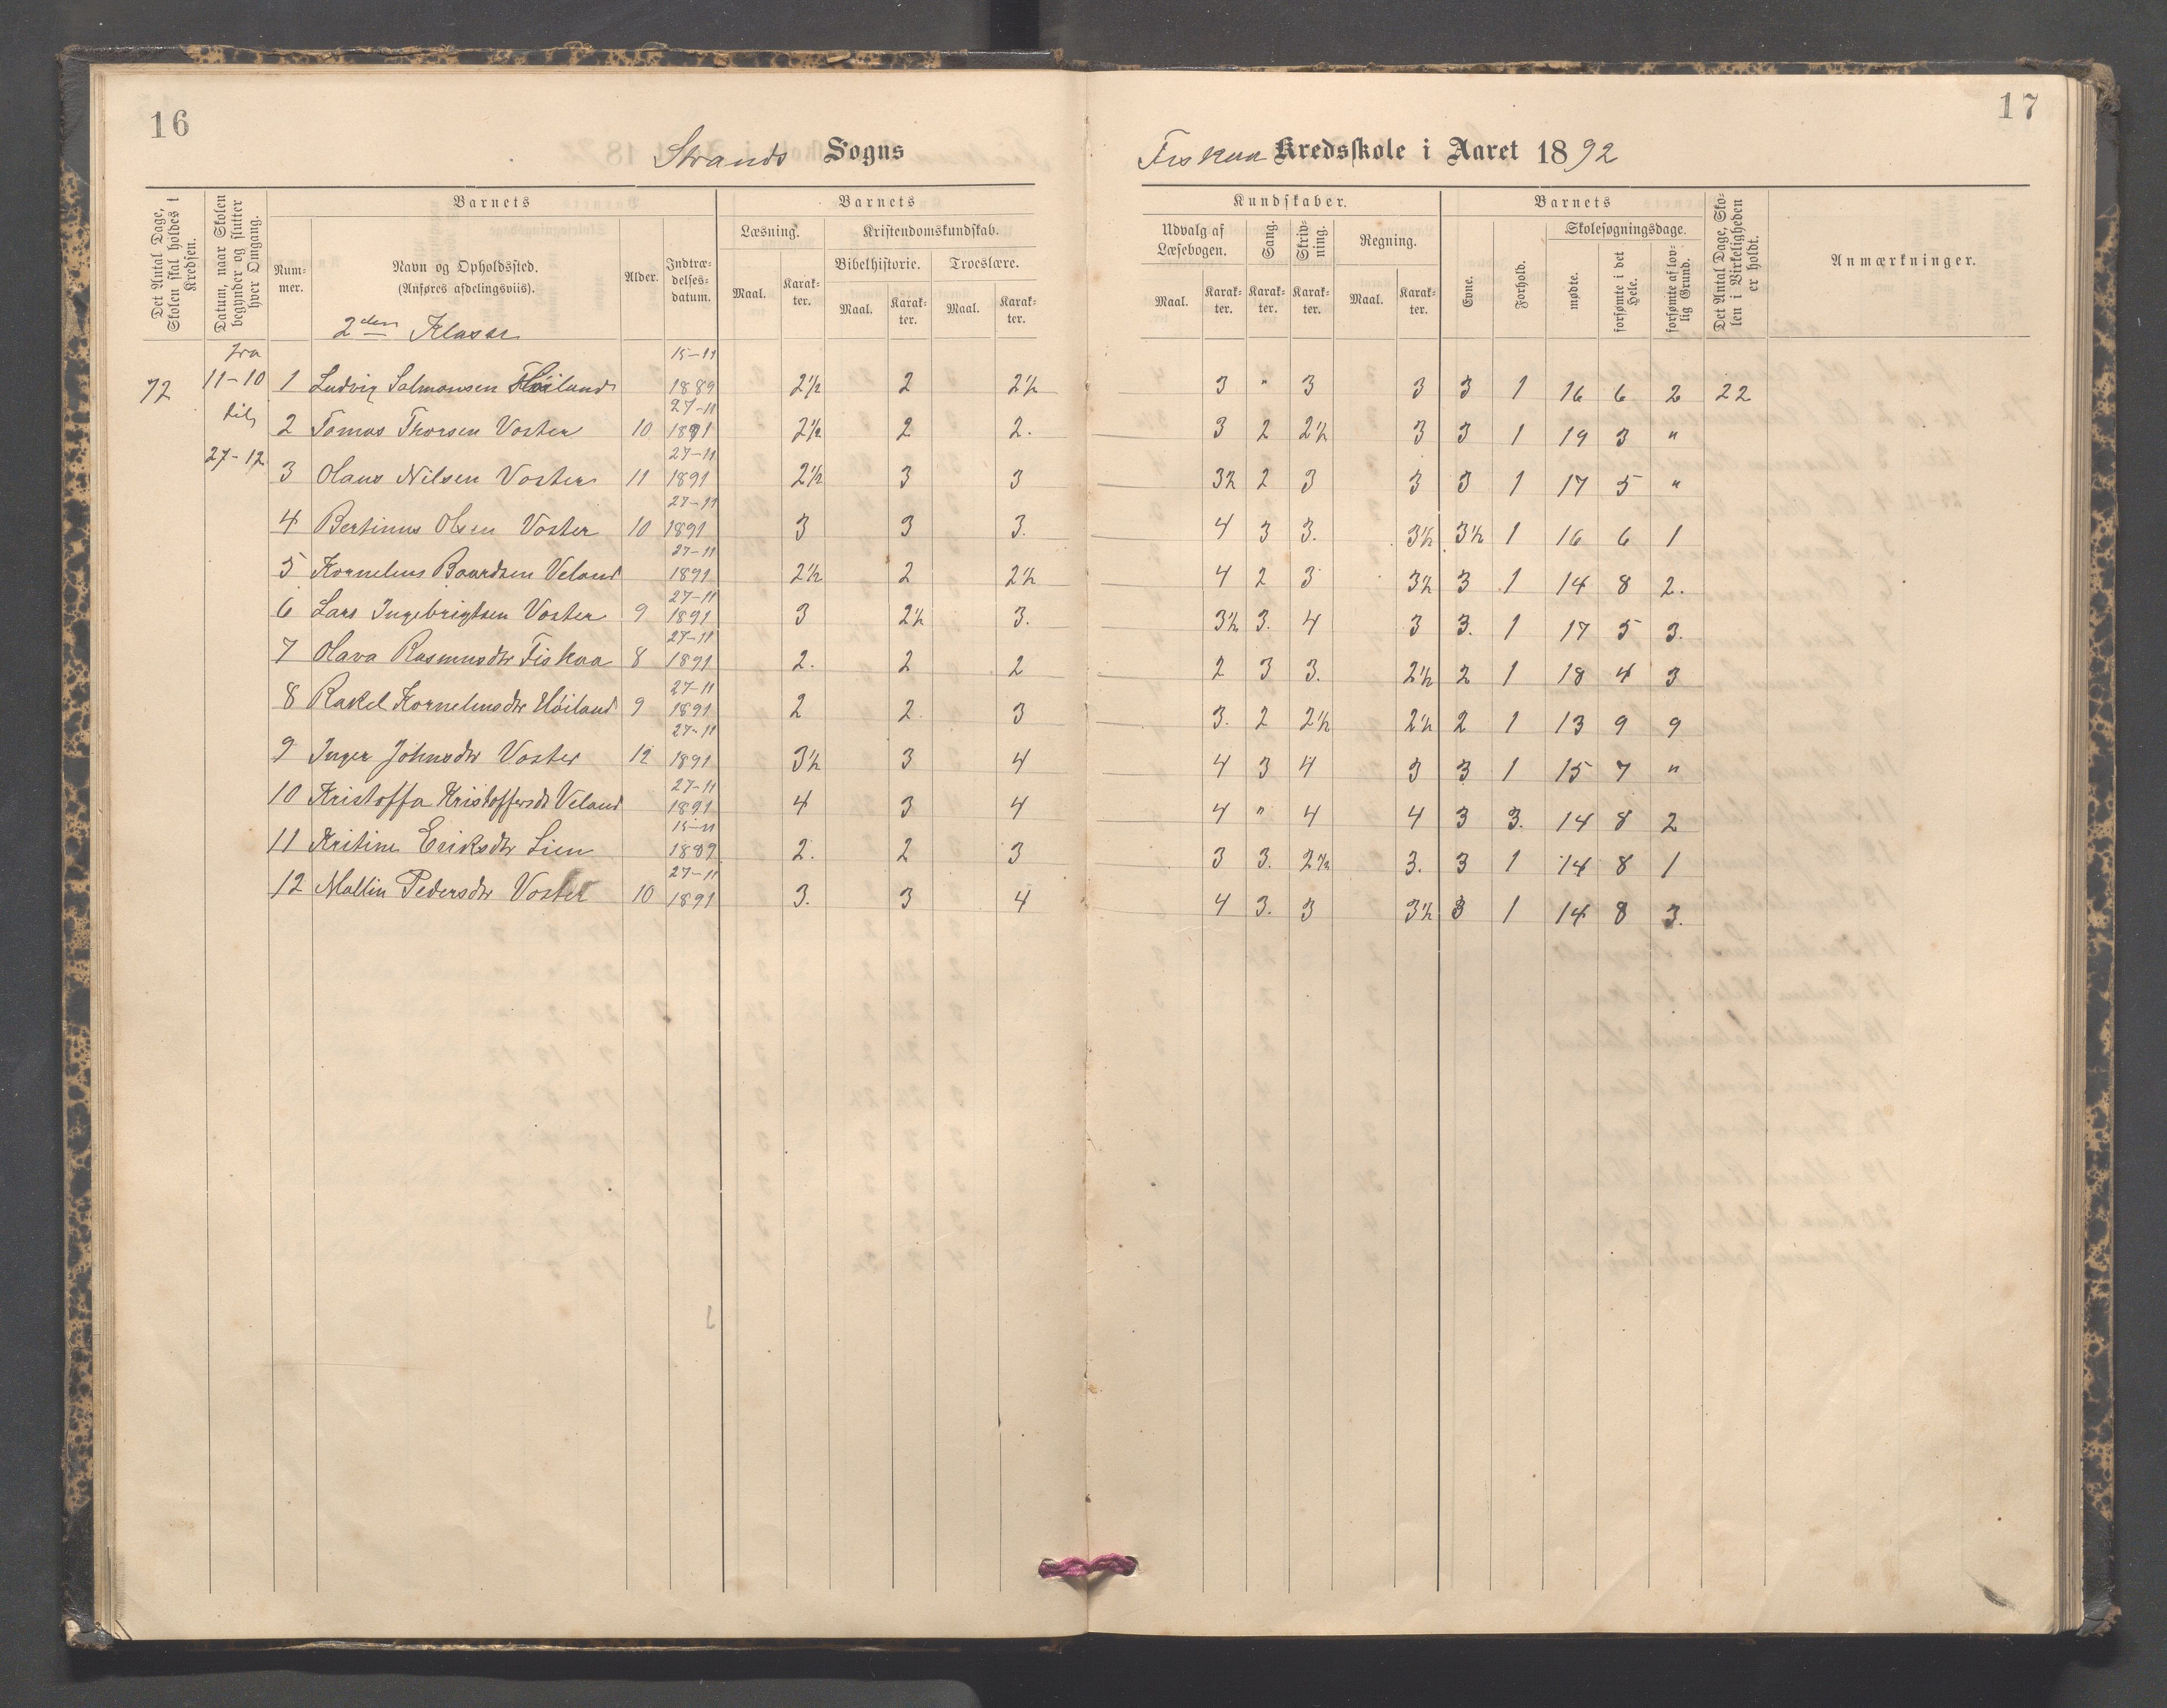 16
Strands Sogns
Det Antal Dage, Skolen skal holdes i Kredsen.
Datum, naar Skolen begynder og slutter hver Omgang.
Barnets
Num-mer.
Navn og Opholdssted.
(Anføres afdelingsviis).
Alder.
Indtræ-delses-datum.
Barnets
Læsning.
Maal.
Karak-ter.
Kristendomskundskab.
Bibelhistorie.
Troeslære.
Maal.
Karak-ter.
Maal.
Karak-ter.
17
Fiskaa Kredsskole i Aaret 1892
Kundskaber.
Udvalg af Læsebogen.
Sang.
Skriv-ning.
Regning.
Maal.
Karak-ter.
Karak-ter.
Karak-ter.
Maal.
Karak-ter.
Barnets
Evne.
Forhold.
Skolesøgningsdage.
mødte.
forsømte i det Hele.
forsømte af lov-lig Grund.
Det Antal Dage, Sko-len i Virkeligheden er holdt.
Anmærkninger.
2den Klasse
72 fra 11-10 til 27-12
1 Ludvig Salmonsen Høiland 15-11 1889 2½ 2 2½ 3 " 3 3 3 1 16 6 2 22
2 Tomas Thorsen Voster 10 27-11 1891 2½ 2 2. 3 2 2½ 3 3 1 19 3 "
3 Olaus Nilsen Voster 11 27-11 1891 2½ 3 3 3½ 2 3 3 3 1 17 5 "
4 Bertinus Olsen Voster 10 27-11 1891 3 3 3. 4 3 3. 3½ 3½ 1 16 6 1
5 Kornelius Baardsen Veland 27-11 1891 2½ 2 2½ 4 2 3 3½ 3 1 14 8 2.
6 Lars Ingebrigtsen Voster 9 27-11 1891 3 2½ 3. 3½ 3. 4 3 3. 1 17 5 3.
7 Olava Rasmusdtr Fiskaa 8 27-11 1891 2. 2 2 2 3 3. 2½ 2 1 18 4 3
8 Rakel Korneliusdtr Høiland 9 27-11 1891 2 2. 3 3. 2 2½ 2½ 2 1 13 9 9
9 Inger Johnsdtr Voster 12 27-11 1891 3½ 3 4 4 3 4 3 3 1 15 7 "
10 Kristoffa Kristoffersdt Veland 27-11 1891 4 3 4 4 " 4 4 3 3. 14 8 2
11 Kritine Eriksdtr Lien 15-11 1889 2. 2 3 3 3. 2½ 3. 3 1 14 8 1
12 Mallin Pedersdtr Voster 10 27-11 1891 3. 3 4 4 3. 3 3½ 3 1 14 8 3.